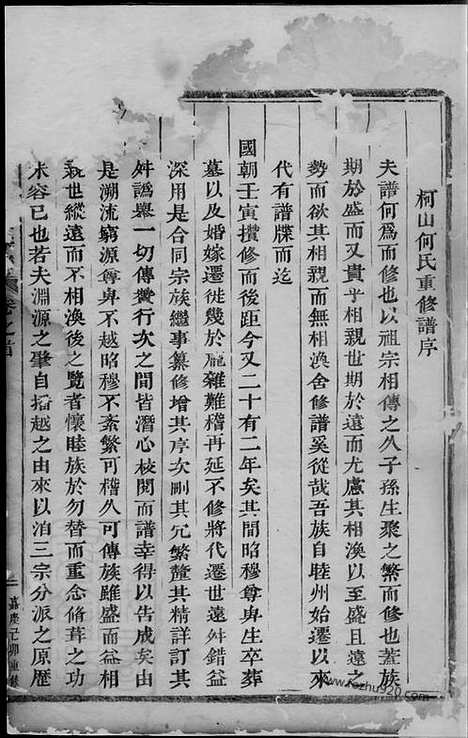 柯山何氏重修譜序
夫譜何爲而修也以祖宗相傳之久子孫生聚之繁而修也蓋族
期於盛而又貴乎相親世期於遠而尤慮其相渙以至盛且遠之
勢而欲其相親而無相渙舍修譜奚從哉吾族自睦州始遷以來
代有譜牒而迄
國朝壬寅攢修而後距今又二十有二年矣其間昭穆尊卑生卒葬
墓以及婚嫁遷徙幾於龐雜難稽再延不修將代遷世遠舛錯益
深用是合同宗族繼事纂修增其序次刪其冗繁釐其精詳訂其
舛譌舉一切傳贊行次之間皆潛心校閱而譜幸得以告成矣由
是溯流窮源尊卑不越昭穆不紊繁可稽久可傳族雖盛而益相
親世縱遠而不相渙後之覽者懷睦族於勿替而重念脩葺之功
未容已也若夫淵源之肇自播越之由來以洎三宗分派之原歷
卷之首
嘉慶己卯重修
www.kezhu920.com